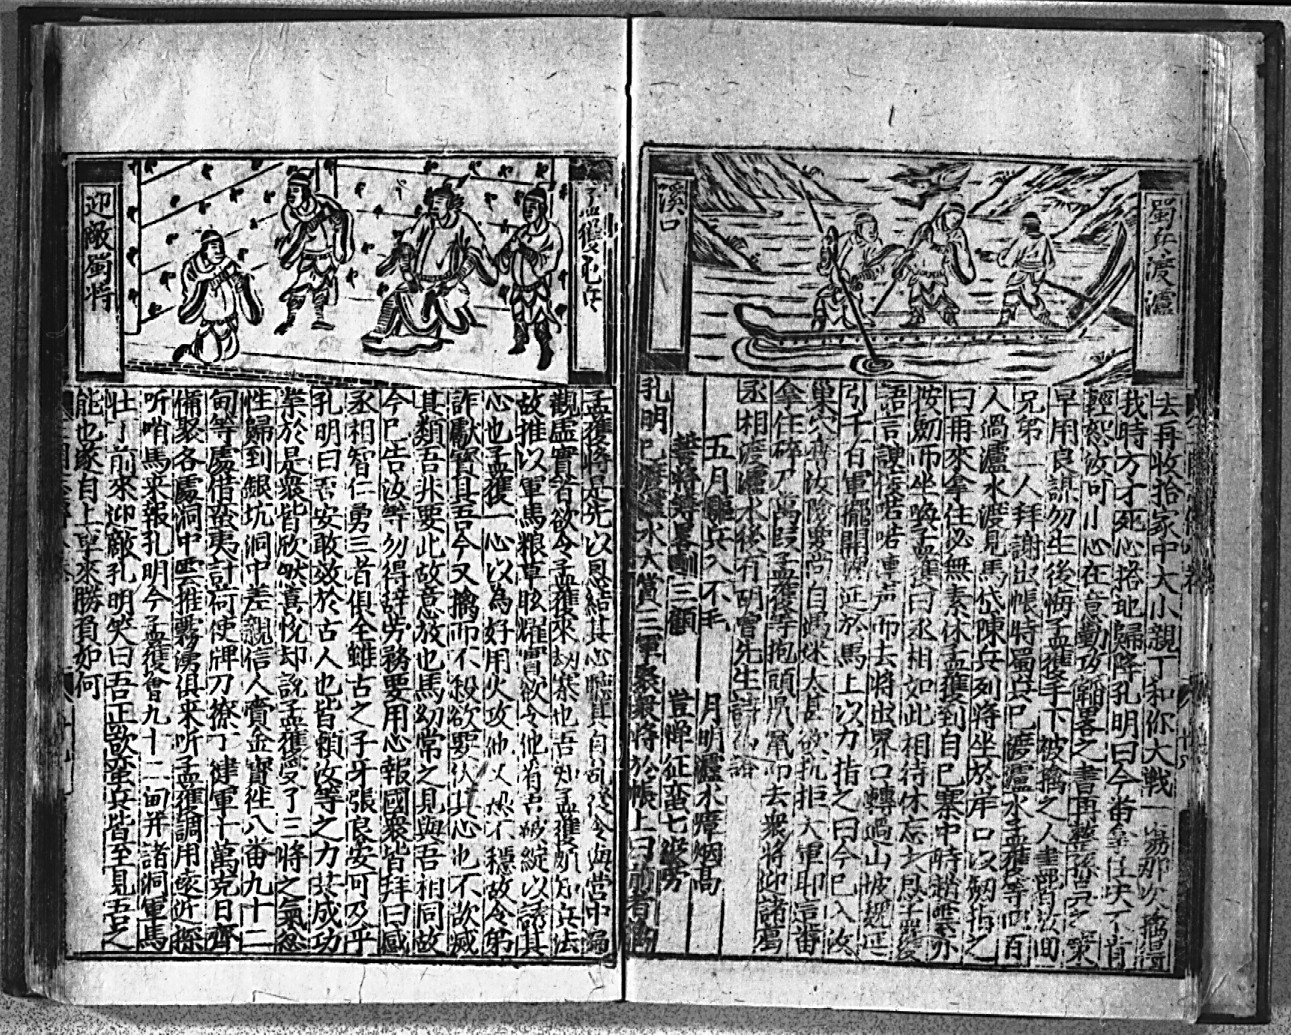 蜀兵渡瀘
溪口
去再收拾家中大小親丁和你大戰一塲那次擒得
我時方才死心塔地歸降孔明曰今番拿住決不肯
輕恕汝可小心在意勤攻韜畧之書再整
早用良謀勿生後悔孟獲手下被擒之人盡
兄弟二人拜謝出帳時蜀兵已渡瀘水孟獲等四百
人過瀘水渡見馬岱陳兵列將坐於岸口以劔指之
曰再來拿住必無素休孟獲到自已寨中時趙雲亦
按劔而坐喚孟獲曰丞相如此相待休忘大恩孟獲
語言諫 喏喏連声而去將出界口轉過山坡魏延
引千百軍擺開魏延於馬上以刀指之曰今已入汝
巢穴奪汝險要尚自愚迷大甚欲抗拒大軍耶這番
拿住碎刀萬段孟獲等抱頭鼠竄而去衆將迎諸葛
丞相渡瀘水後有胡曾先生詩
五月驅兵入不毛　月明瀘水瘴烟高
誓將雄畧酬三顧　豈憚征蠻七縱勞
孔明已渡瀘水大賞三軍聚衆將於帳上曰前者
孟獲
迎敵蜀將
孟獲將是先以恩結其心聽其自乱後令 當中
觀虛實者欲令孟獲來刼寨也吾知孟獲頗知兵法
故推以軍馬粮草眩耀實欲令他有吾破綻以誘其
心也孟獲一心以為好用火攻他 不穩故令弟
詐獻寶貝吾今又擒而不殺欲要伏其心也不欲滅
其類吾非要此故意放也馬幼常之見與吾相同故
今已告汝等勿得辞劳務要用心報國衆皆拜曰感
丞相智仁勇三者俱全雖古之子牙張良安可及乎
孔明曰吾安敢效於古人也皆賴汝等之力共成功
業於是衆皆欣然喜悅却說孟獲受了三將之氣忿
性歸到銀坑洞中差親信人賫金寶徃八番九十二
甸等處借蛮夷討荷使牌刀獠丁健軍十萬克日齊
備聚各處洞中雲推霧湧俱來听孟獲調用遠近探
听哨馬来報孔明今孟獲會九十二甸并諸洞軍馬
壮丁前來迎敵孔明笑曰吾正欲蛮兵皆至見吾之
能也遂自上車來勝負如何